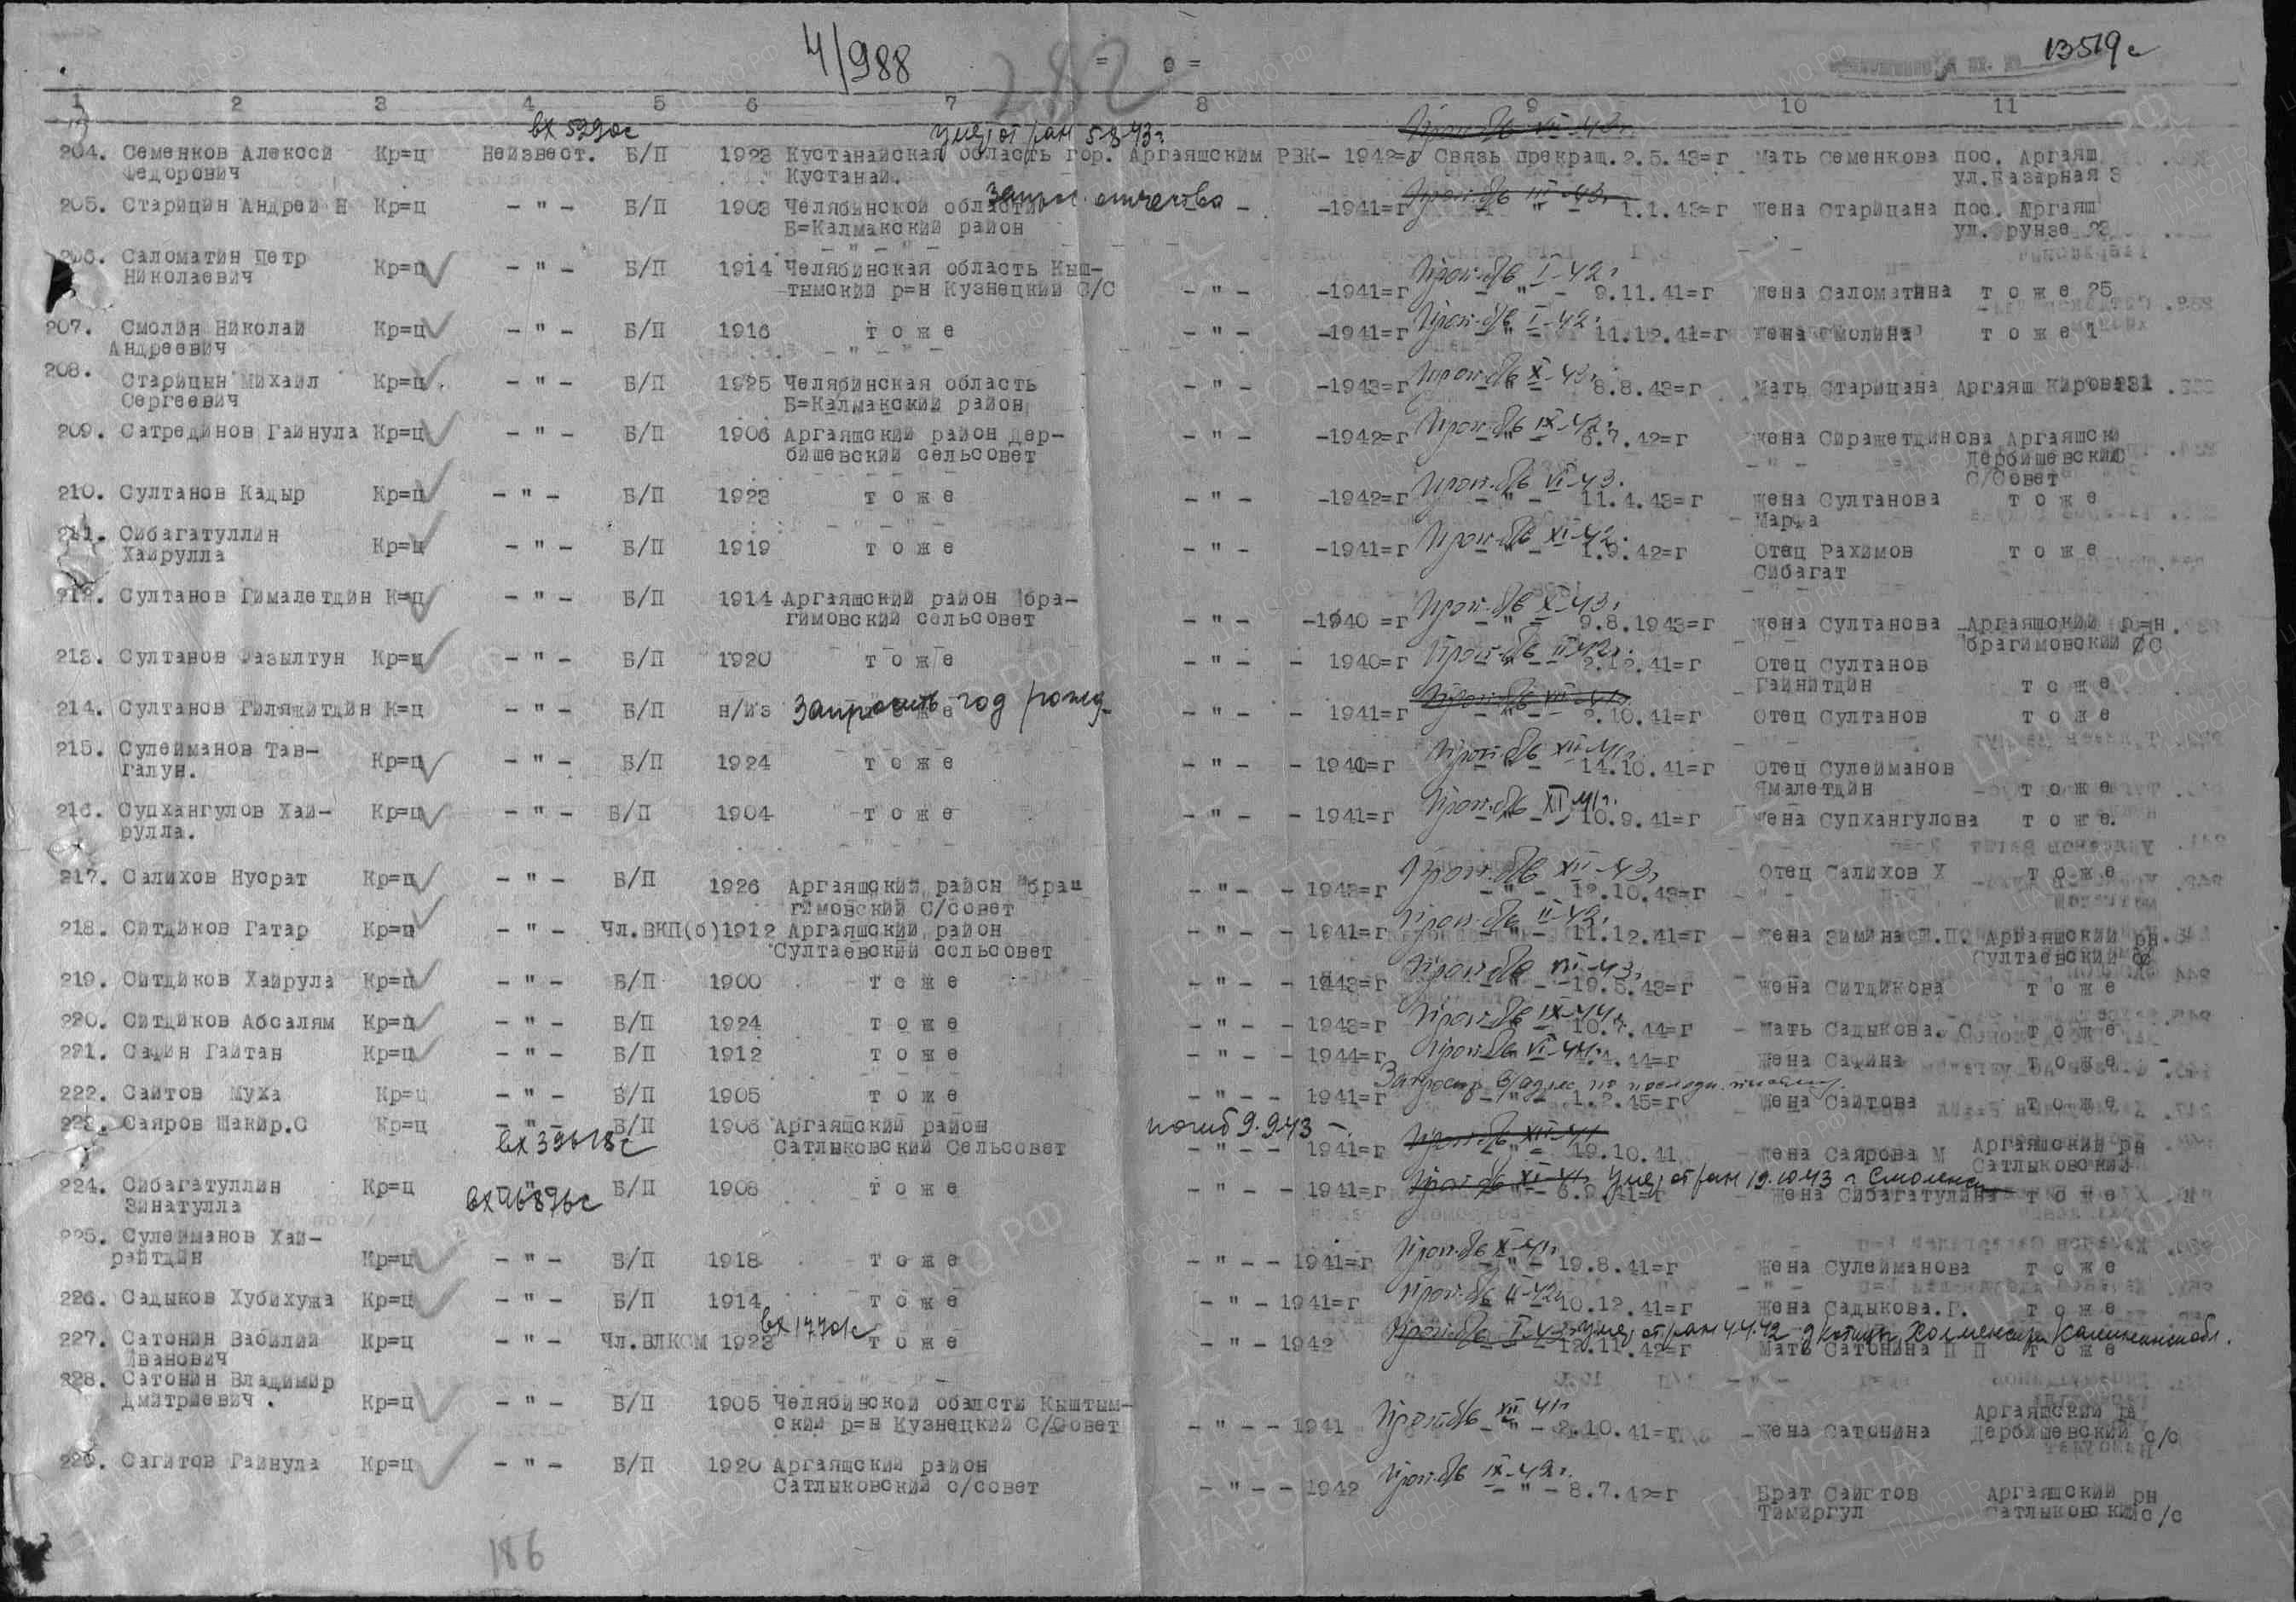 4/988
282
= 9 =
13519с
1 2 3 4 5 6 7 8 9 10 11
вх 5290с умер от ран 5.8.43г. Проп. б/в XII-43г.
204. Семенков Алексей Кр=ц Неизвест. Б/П 1923 Кустанайская область гор. Аргаяшским РВК- 1942=г Связь прекращ.2.5.43=г Мать Семенкова пос. Аргаяш
Федорович Кустанай. ул.Базарная 3
Запрос. отчество Проп. б/в III-43г.
205. Старицин Андрей Н Кр=ц - " - Б/П 1903 Челябинской области - " - -1941=г - " - 1.1.43=г Жена Старицана пос. Аргаяш
Б=Калмакский район ул. Фрунзе 23
206. Саломатин Петр Кр=ц - " - Б/П 1914 Челябинская область Кыш- Проп. б/в I-42г.
Николаевич тымский р=н Кузнецкий С/С - " - -1941=г - " - 9.11.41=г Жена Саломатина т о ж е 25
Проп. б/в I-42г.
207. Смолин Николай Кр=ц - " - Б/П 1916 т о ж е - " - -1941=г - " - 11.12.41=г Жена Смолина т о ж е 1
Андреевич
208. Старицын Михаил Кр=ц - " - Б/П 1925 Челябинская область - " - -1943=г Проп. б/в X-43г. 8.8.43=г Мать Старицана Аргаяш Кирова231
Сергеевич Б=Калмакский район
209. Сатрединов Гайнула Кр=ц - " - Б/П 1906 Аргаяшский район Дер- - " - -1942=г Проп. б/в IX-42г. 6.7.42=г Жена Сиражетдинова Аргаяшски
бишевский сельсовет Дербишевский
С/Совет
Проп. б/в VI-43.
210. Султанов Кадыр Кр=ц - " - Б/П 1923 т о ж е - " - -1942=г - " - 11.4.43=г Жена Султанова т о ж е
Марфа
Проп. б/в XI-42.
211. Сибагатуллин Кр=ц - " - Б/П 1919 т о ж е - " - -1941=г - " - 1.9.42=г Отец Рахимов т о ж е
Хайрулла Сибагат
212. Султанов Гималетдин К=ц - " - Б/П 1914 Аргаяшский район Ибра- Проп. б/в X-43г.
гимовский сельсовет - " - -1940 =г - " - 9.8.1943=г Жена Султанова Аргаяшский р=н.
Ибрагимовский СС
213. Султанов Фазылтун Кр=ц - " - Б/П 1920 т о ж е - " - - 1940=г Проп. б/в II-42г. 2.12.41=г Отец Султанов
Гайнитдин т о ж е
Запросить год рожд. Проп. б/в XII-41г.
214. Султанов Гиляжитдин К=ц - " - Б/П н/из т о ж е - " - - 1941=г - " - 2.10.41=г Отец Султанов т о ж е
215. Сулейманов Тав- Кр=ц - " - Б/П 1924 т о ж е - " - - 1940=г Проп. б/в XII-41г. 14.10.41=г Отец Сулейманов
галун. Ямалетдин т о ж е
216. Супхангулов Хай- Кр=ц - " - Б/П 1904 т о ж е - " - - 1941=г Проп. б/в XI 41г. 10.9.41=г Жена Супхангулова т о ж е.
рулла.
Проп. б/в XII-43г.
217. Салихов Нусрат Кр=ц - " - Б/П 1926 Аргаяшский район Ибра - " - - 1943=г - " - 12.10.43=г Отец Салихов Х т о ж е
гимовский С/совет
Проп. б/в II-42г.
218. Ситдиков Гатар Кр=ц - " - Чл.ВКП(б)1912 Аргаяшский район - " - - 1941=г - " - 11.12.41=г - Жена Зимина Аргаяшский рн
Султаевский сельсовет Султаевский
219. Ситдиков Хайрула Кр=ц - " - Б/П 1900 т о ж е - " - - 1943=г Проп. б/в VII-43г. 19.5.43=г Жена Ситдикова т о ж е
220. Ситдиков Абсалям Кр=ц - " - Б/П 1924 т о ж е - " - - 1943=г Проп. б/в IX-44г. 10.7.44=г - Мать Садыкова. С т о ж е
221. Сафин Гайтан Кр=ц - " - Б/П 1912 т о ж е - " - - 1944=г Проп. б/в VI-44г. 4.44=г Жена Сафина т о ж е -
Запросить в/адрес по последн. письму.
222. Сайтов Муха Кр=ц - " - Б/П 1905 т о ж е - " - - 1941=г - " - 1.2.45=г Жена Сайтова т о ж е
223. Саяров Шакир.С Кр=ц - " - Б/П 1906 Аргаяшский район погиб 9.9.43 г. Проп. б/в XII-41
вх 39618с Сатлыковский Сельсовет - " - - 1941=г - " - 19.10.41 Жена Саярова М Аргаяшский рн
Сатлыковский
224. Сибагатуллин Кр=ц " Б/П 1908 т о ж е - " - - 1941=г Проп. б/в XI-41 умер от ран 19.10.43 г. Смоленск
Зинатулла вх 46896с 6.9.41=г Жена Сибагатулина т о ж е
225. Сулейманов Хай-
райтдин Кр=ц - " - Б/П 1918 т о ж е - " - - 1941=г Проп. б/в X-41г. - " - 19.8.41=г Жена Сулейманова т о ж е
226. Садыков Хубихужа Кр=ц - " - Б/П 1914 т о ж е - " - 1941=г Проп. б/в II-42г. 10.12.41=г Жена Садыкова.Г. т о ж е
вх 17701с Проп. б/в I-43г. умер от ран 4.4.42 Холменский Калининской обл.
227. Сатонин Василий Кр=ц - " - Чл.ВЛКСМ 1923 т о ж е - " - 1942 - " - 12.11.42=г Мать Сатонина П П т о ж е
Иванович
228. Сатонин Владимир
Дмитриевич . Кр=ц - " - Б/П 1905 Челябинской области Кыштым- Аргаяшский рн
ский р=н Кузнецкий С/Совет - " - - 1941 Проп. б/в XII 41г. - " - 2.10.41=г - Жена Сатонина Дербишевский с/с
229. Сагитов Гайнула Кр=ц - " - Б/П 1920 Аргаяшский район Проп. б/в IX-42г.
Сатлыковский с/совет - " - - 1942 - " - 8.7.42=г Брат Сайгтов Аргаяшский рн
Тимиргул Сатлыковскийс/с
186